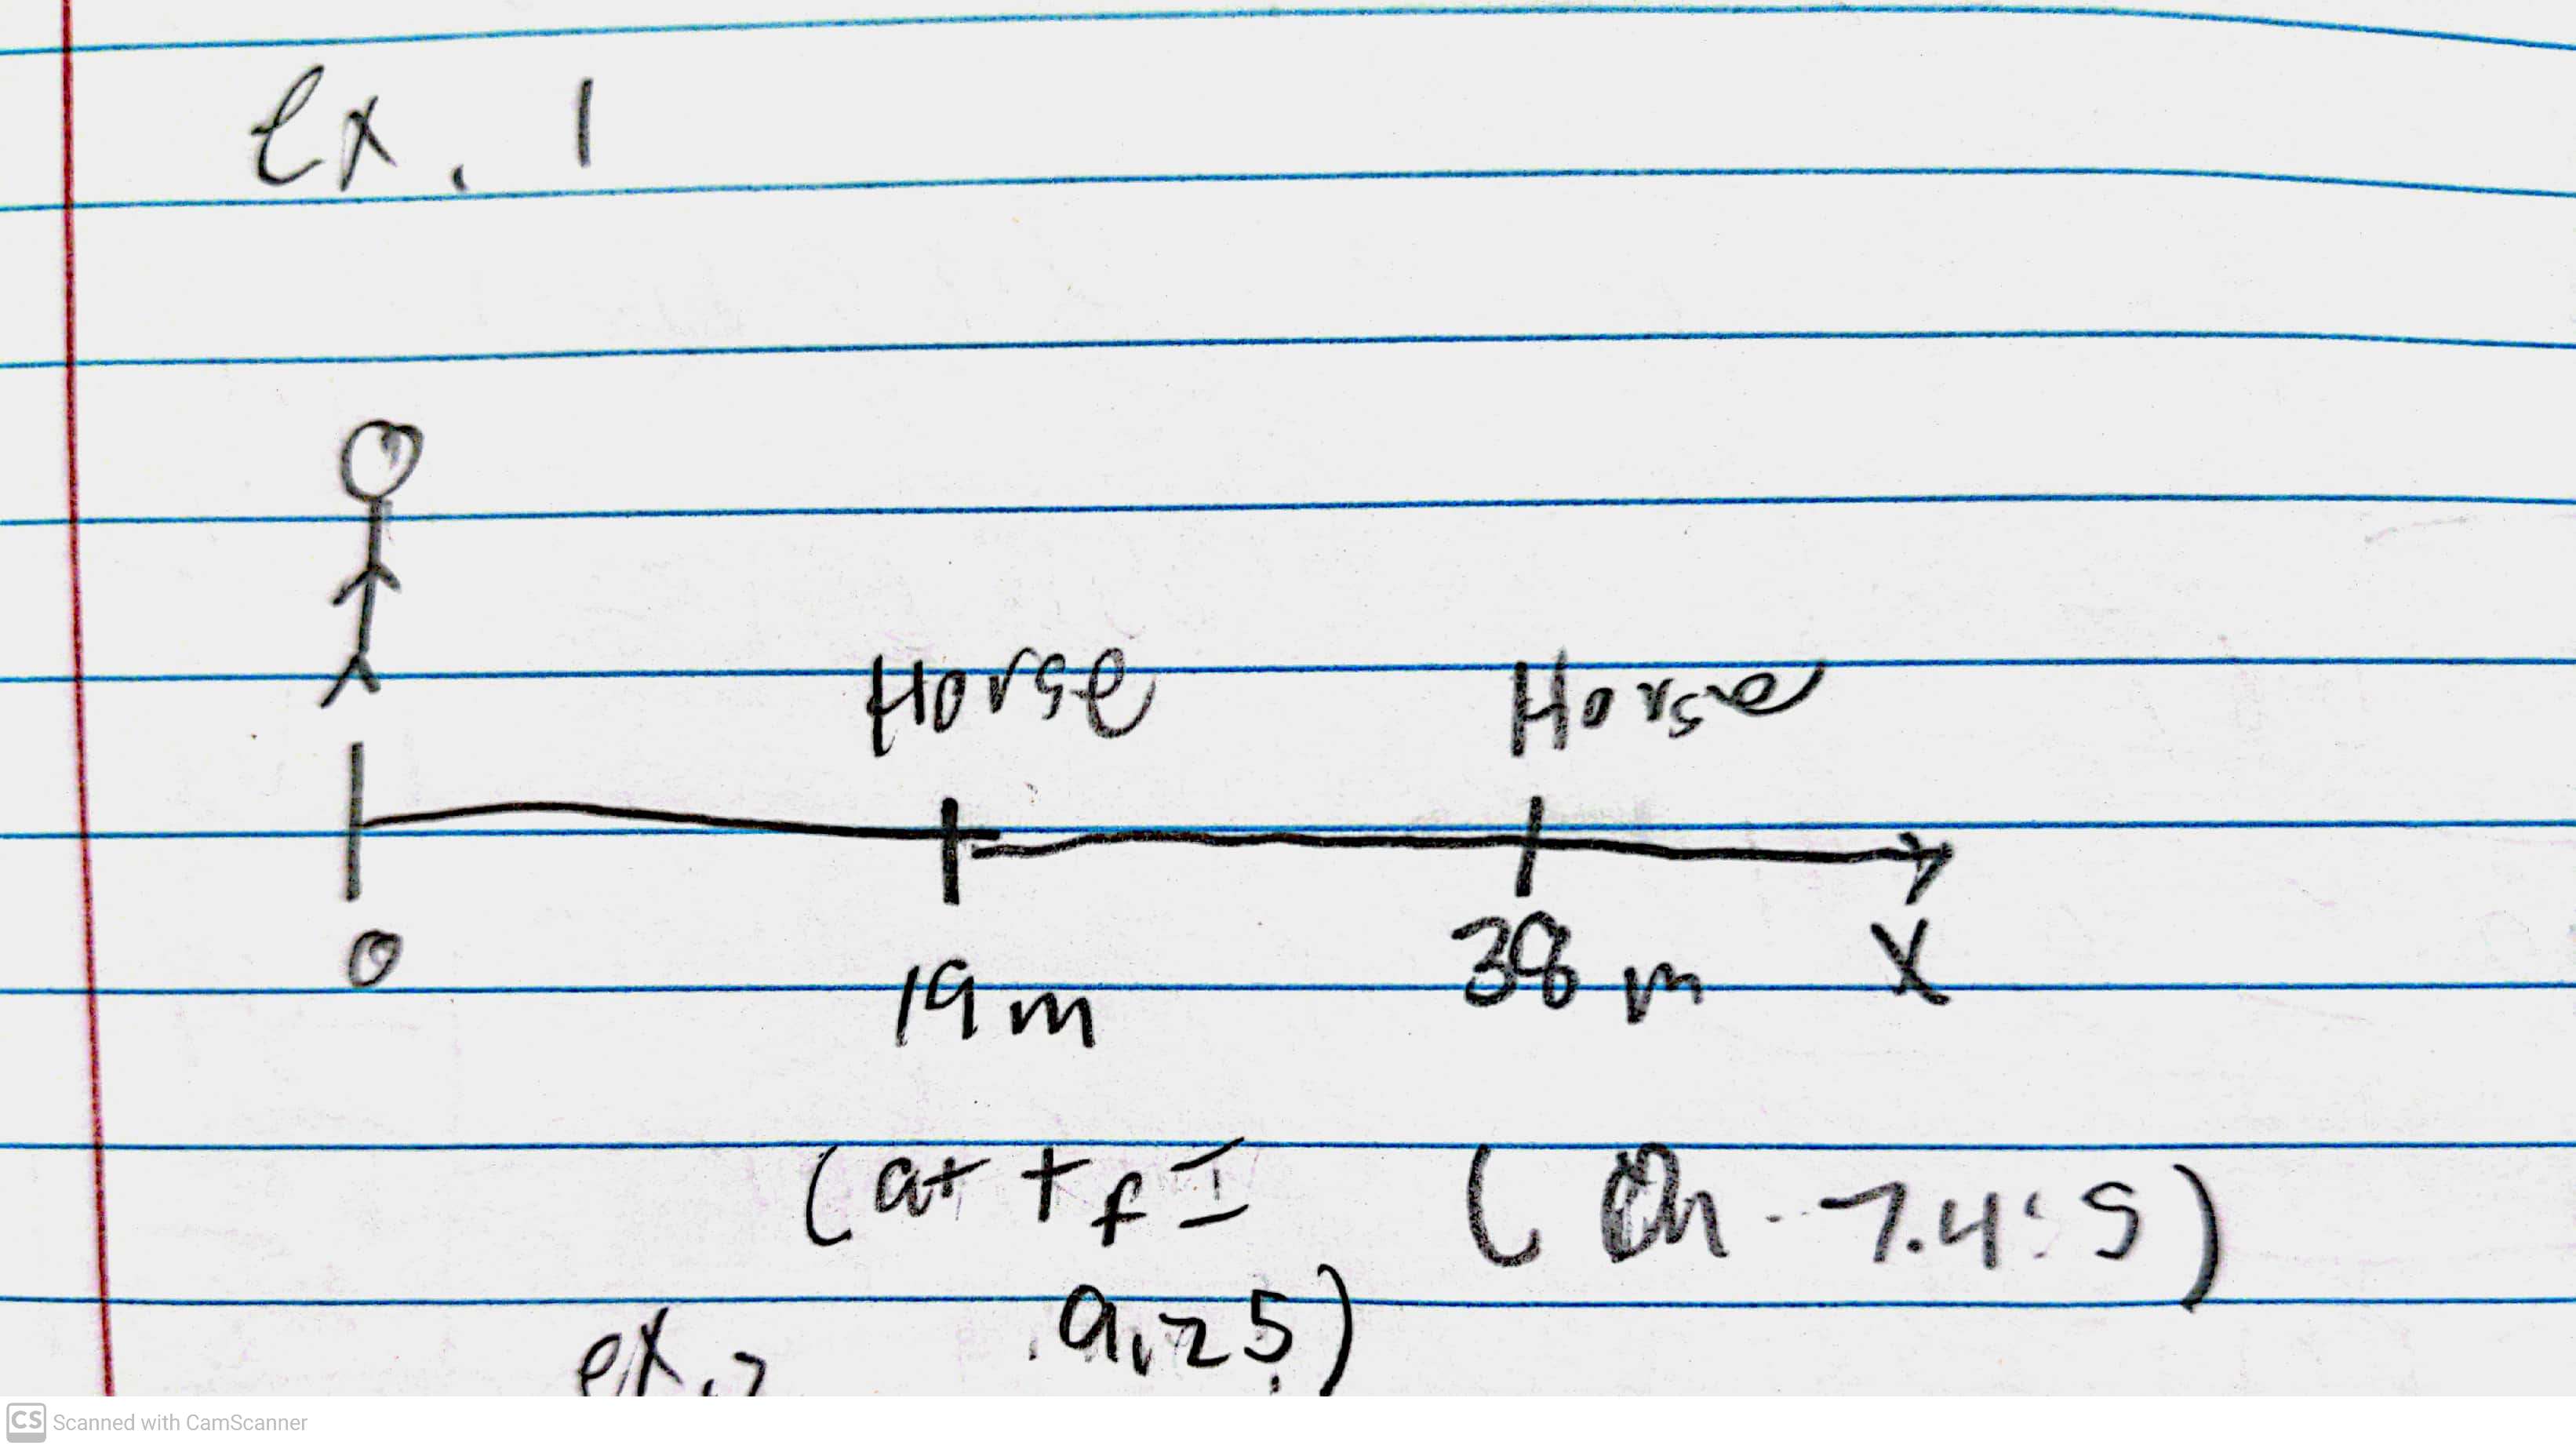 ex. 1
Horse Horse
0 19 m 38 m x
(at t f =
9.2 s)
ex. 2
CS Scanned with CamScanner